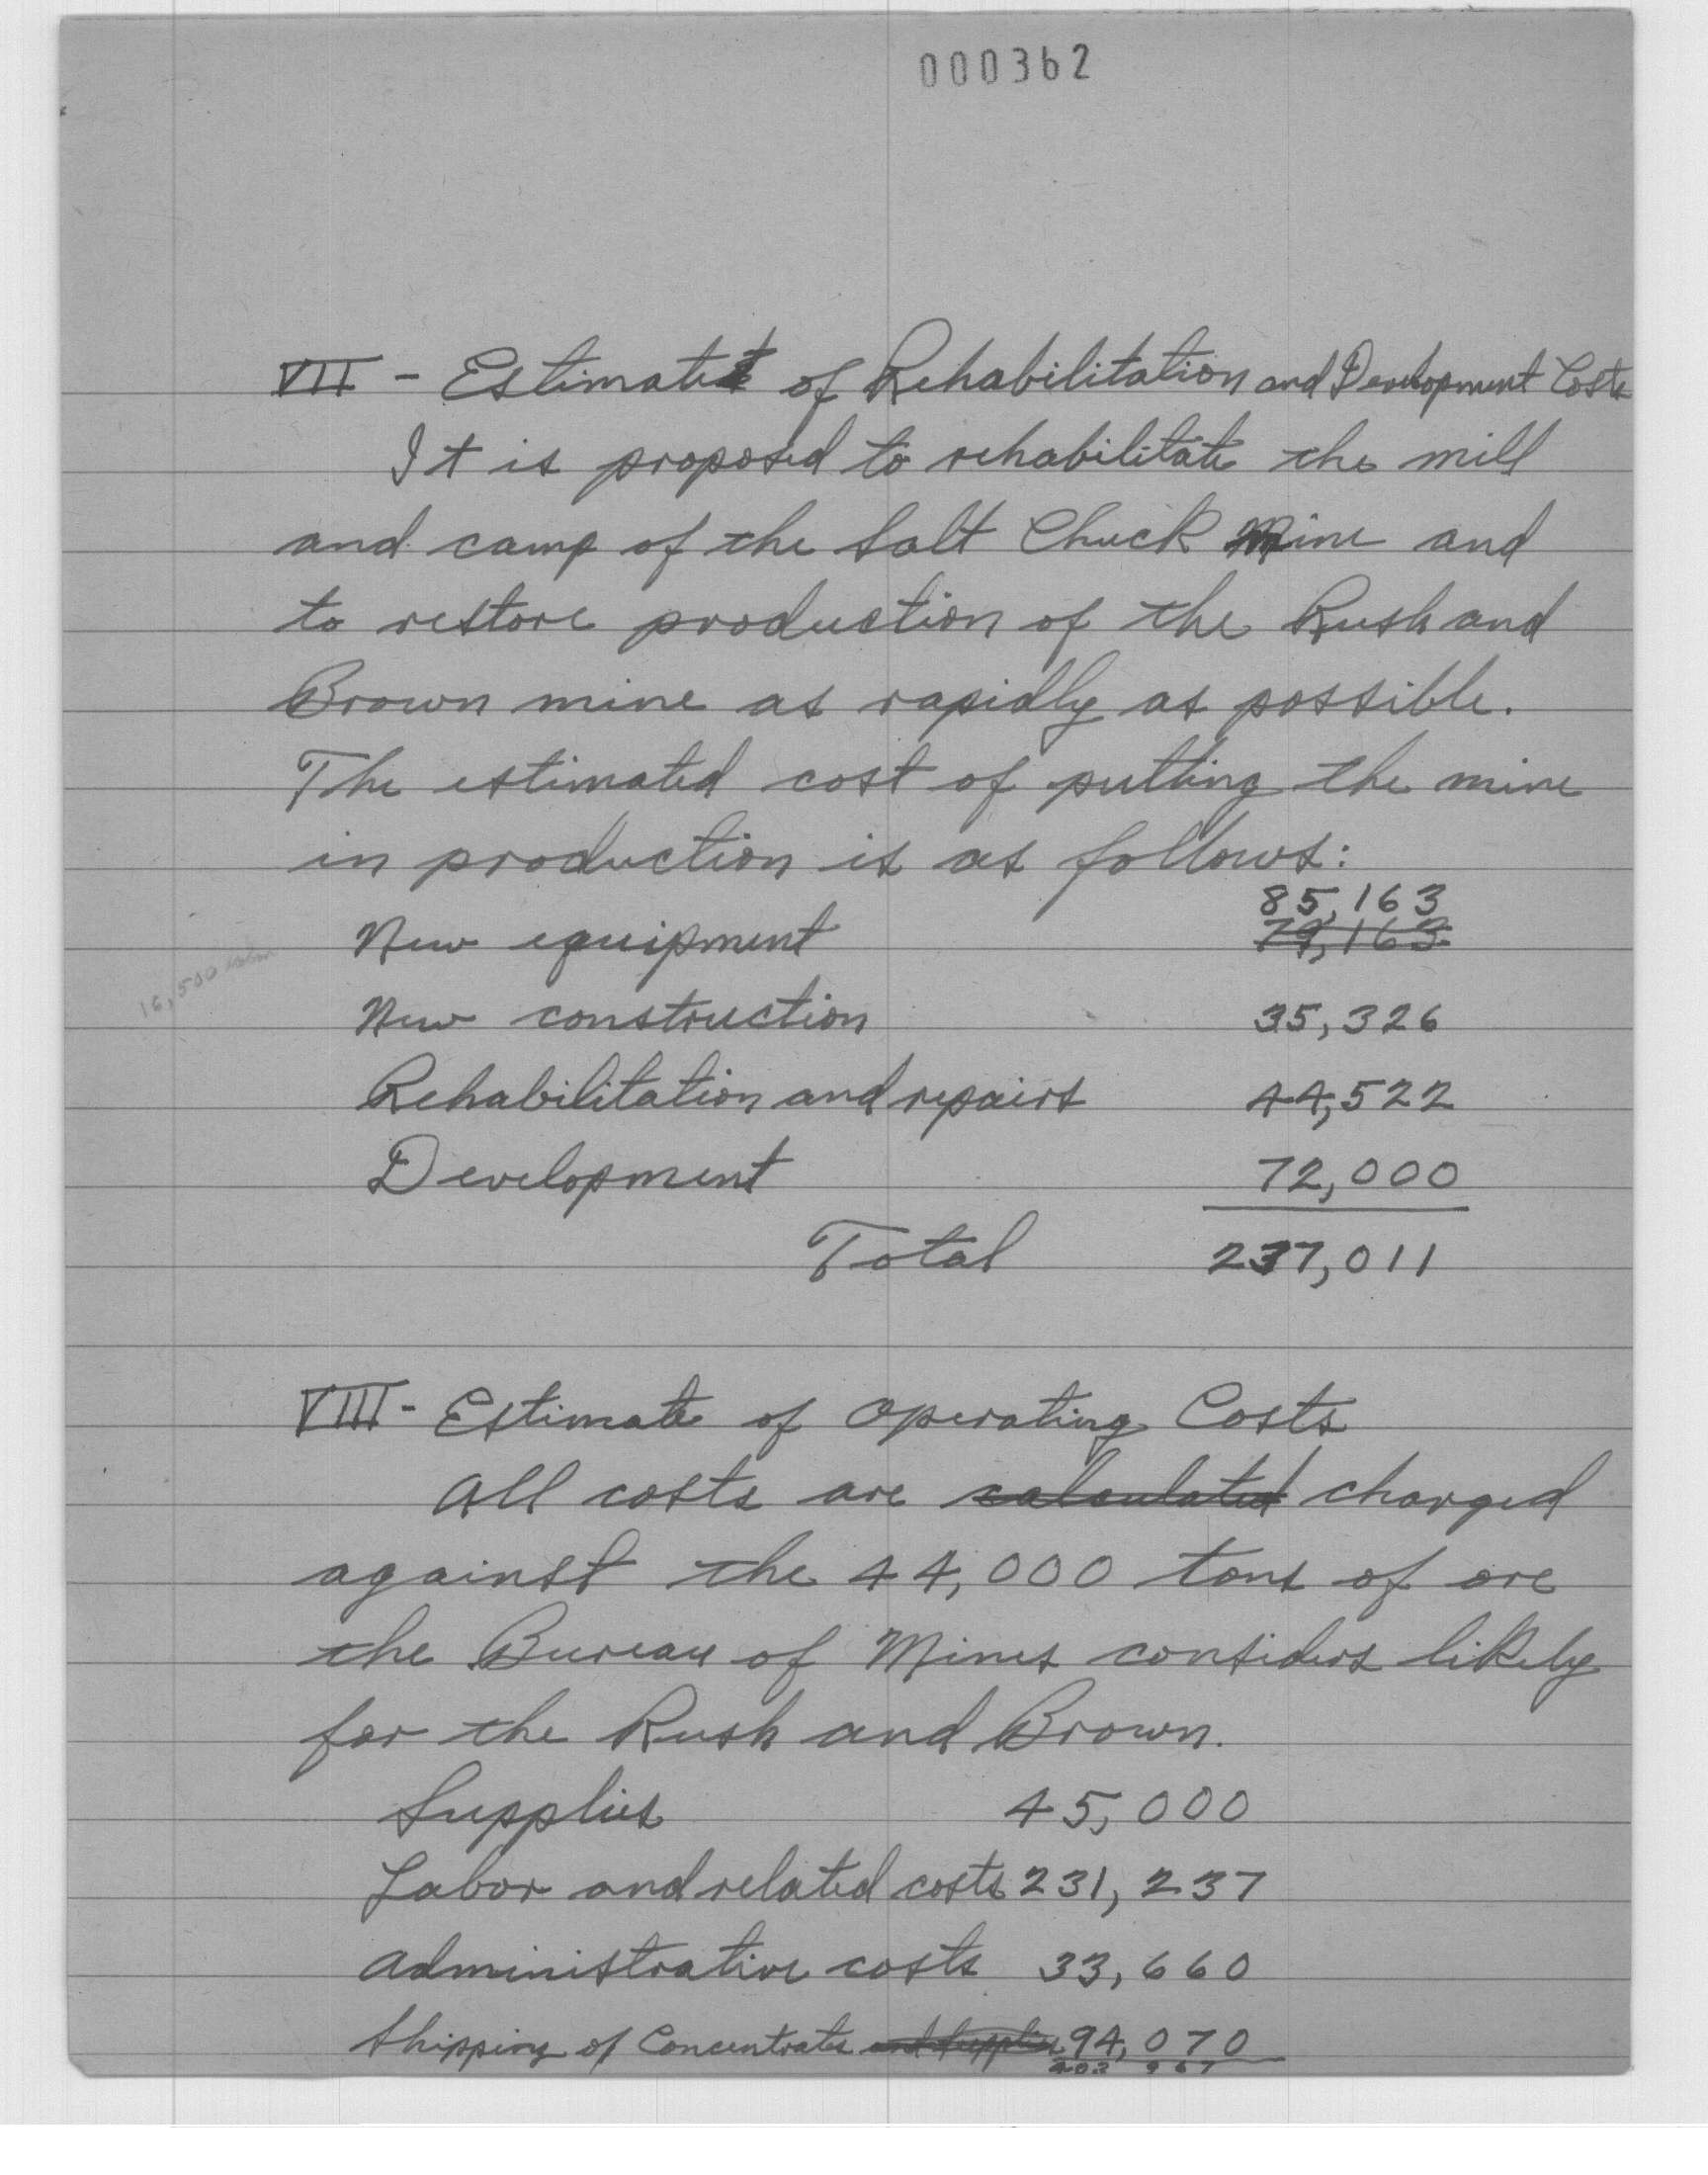 000362
VII - Estimate of Rehabilitation and Development Costs
It is proposed to rehabilitate the mill
and camp of the Salt Chuck Mine and
to restore production of the Rush and
Brown mine as rapidly as possible.
The estimated cost of putting the mine
in production is as follows:
85,163
New equipment 79,163
16,500
New construction 35,326
Rehabilitation and repairs 44,522
Development 72,000
Total 237,011
VIII - Estimate of Operating Costs
All costs are calculated charged
against the 44,000 tons of ore
the Bureau of Mines considers likely
for the Rush and Brown.
Supplies 45,000
Labor and related costs 231,237
Administrative costs 33,660
Shipping of Concentrates and supplies 94,070
403 967